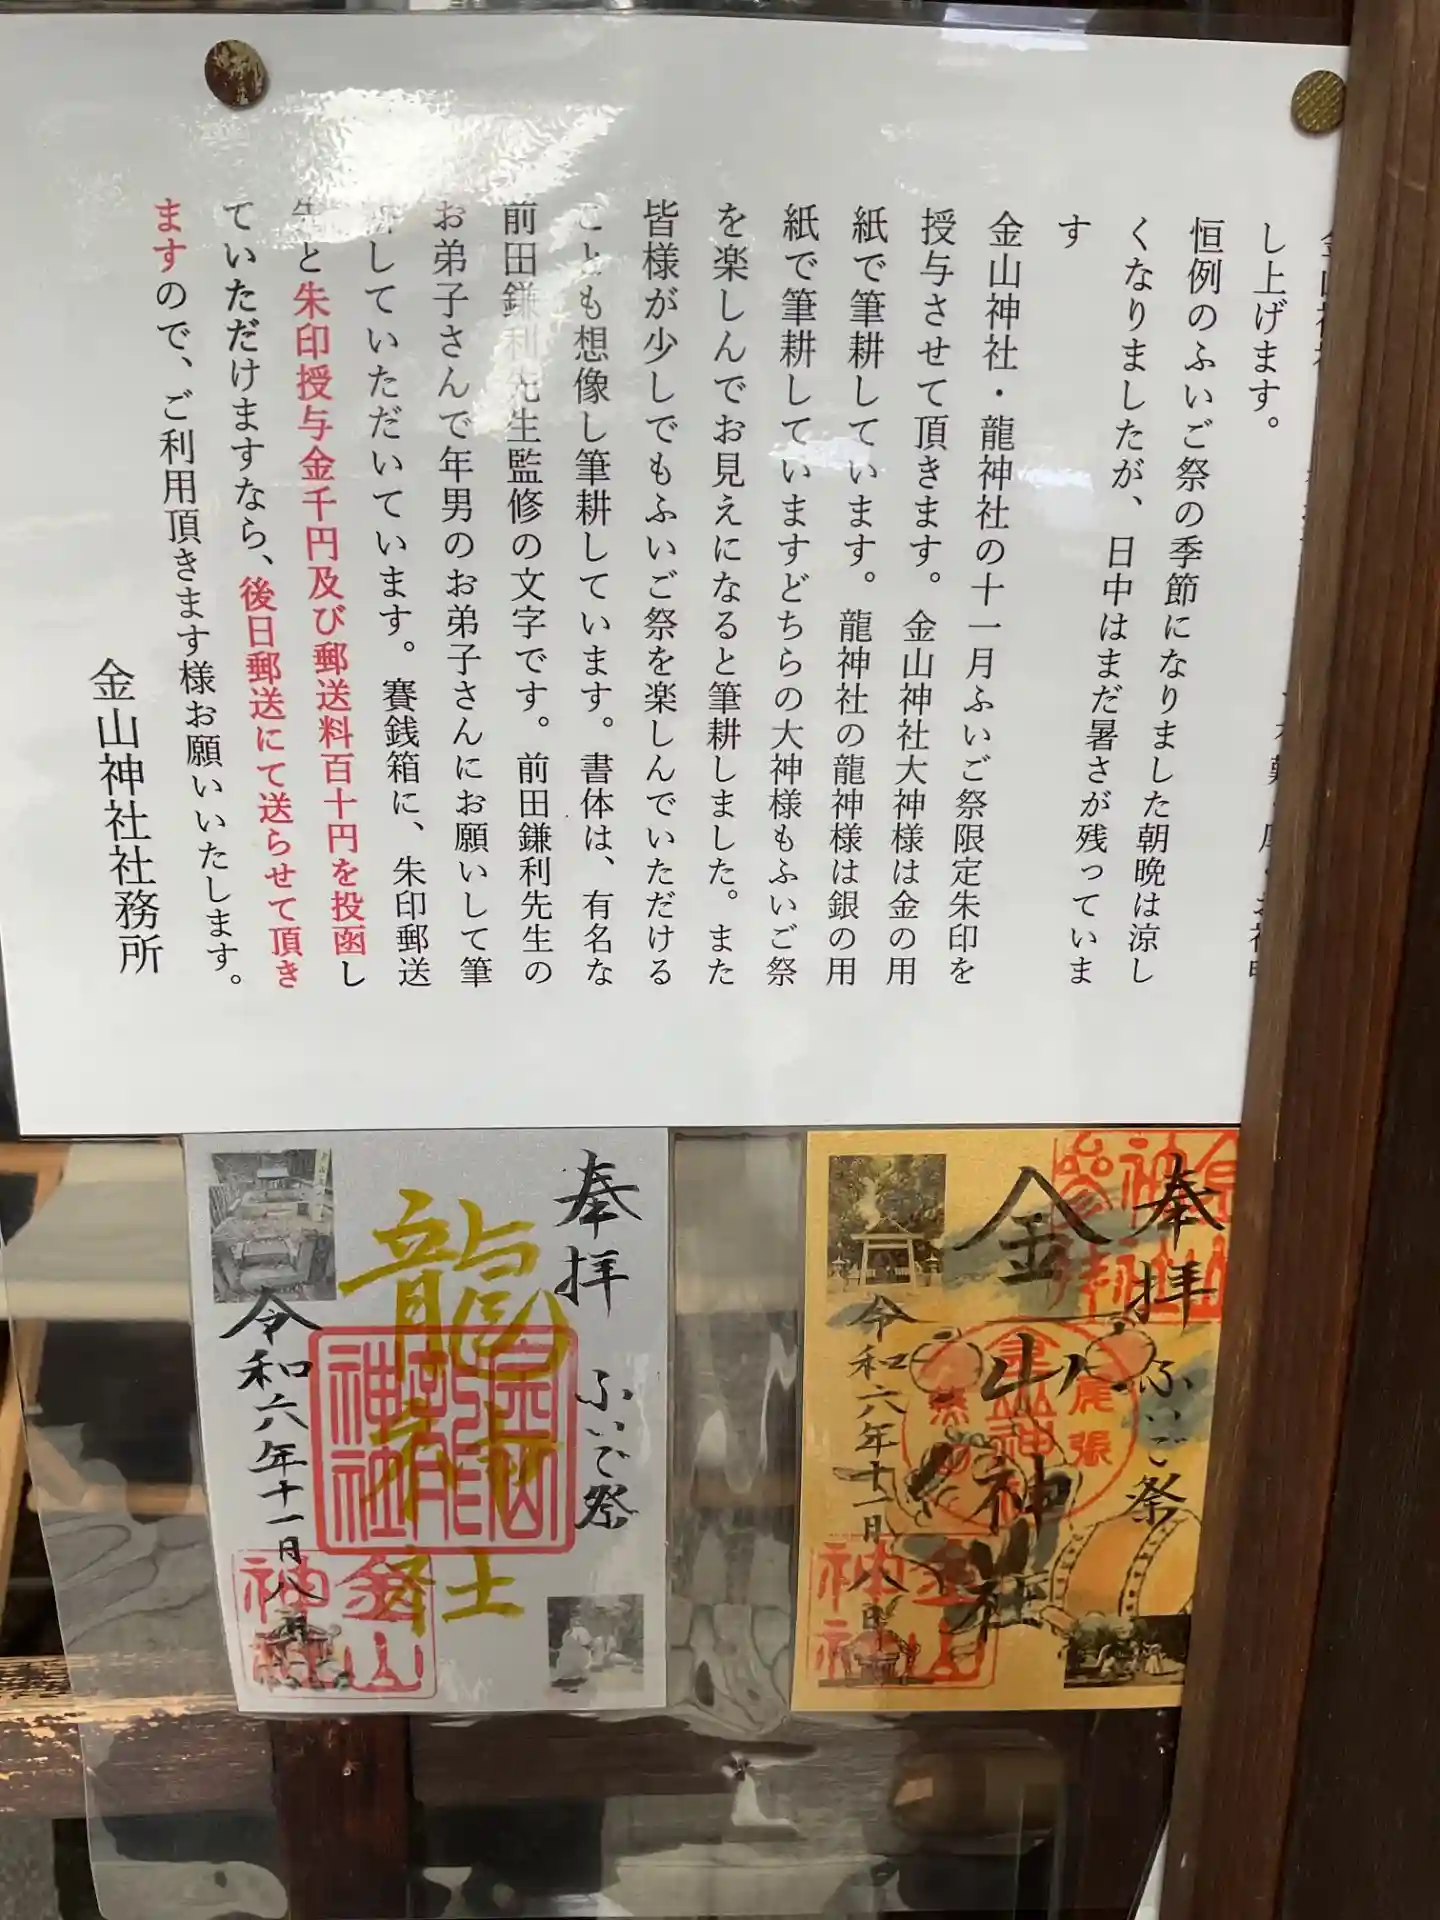 し上げます。
恒例のふいご祭の季節になりました朝晩は涼し
くなりましたが、日中はまだ暑さが残っていま
す
金山神社・龍神社の十一月ふいご祭限定朱印を
授与させて頂きます。金山神社大神様は金の用
紙で筆耕しています。龍神社の龍神様は銀の用
紙で筆耕していますどちらの大神様もふいご祭
を楽しんでお見えになると筆耕しました。また
皆様が少しでもふいご祭を楽しんでいただける
ことも想像し筆耕しています。書体は、有名な
前田鎌利先生監修の文字です。前田鎌利先生の
お弟子さんで年男のお弟子さんにお願いして筆
していただいています。賽銭箱に、朱印郵送
先と朱印授与金千円及び郵送料百十円を投函し
ていただけますなら、後日郵送にて送らせて頂き
ますので、ご利用頂きます様お願いいたします。
金山神社社務所
奉拝 ふいご祭
金山神社
令和六年十一月八日
尾張
金山神社
金山神社
奉拝 ふいご祭
龍神
令和六年十一月八日
金山神社